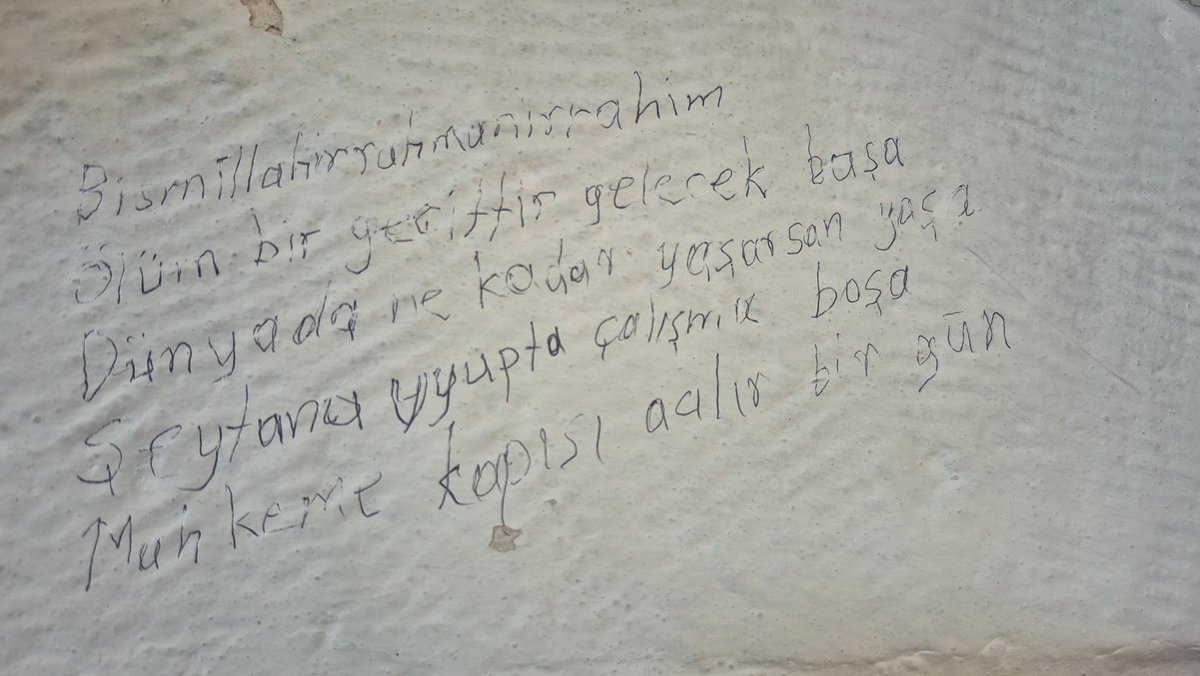 Bismillahirrahmanirrahim
Ölüm bir geçittir gelecek başa
Dünyada ne kadar yaşarsan yaşa
Şeytana uyupta çalışma boşa
Mahkeme kapısı açılır bir gün